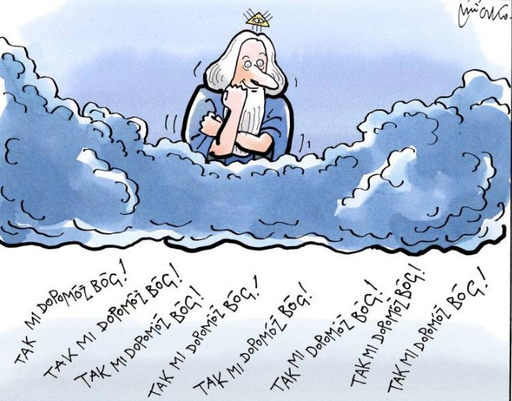 TAK MI DOPOMÓŻ BÓG!
TAK MI DOPOMÓŻ BÓG!
TAK MI DOPOMÓŻ BÓG!
TAK MI DOPOMÓŻ BÓG!
TAK MI DOPOMÓŻ BÓG!
TAK MI DOPOMÓŻ BÓG!
TAK MI DOPOMÓŻ BÓG!
TAK MI DOPOMÓŻ BÓG!